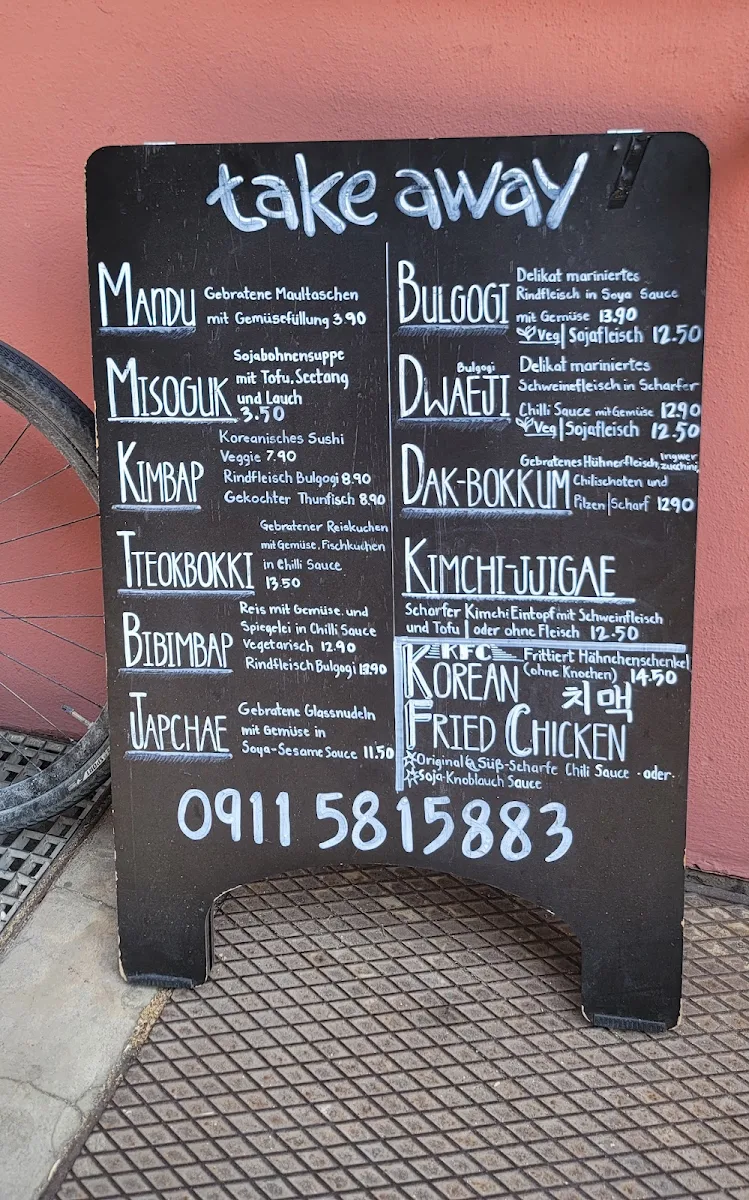 take away
MANDU
Gebratene Maultaschen
mit Gemüsefüllung 3.90
MISOGUK
Sojabohnensuppe
mit Tofu, Seetang
und Lauch
3.50
KIMBAP
Koreanisches Sushi
Veggie 7.90
Rindfleisch Bulgogi 8.90
Gekochter Thunfisch 8.90
TTEOKBOKKI
Gebratener Reiskuchen
mit Gemüse, Fischkuchen
in Chilli Sauce
13.50
BIBIMBAP
Reis mit Gemüse und
Spiegelei in Chilli Sauce
Vegetarisch 12.90
Rindfleisch Bulgogi 13.90
JAPCHAE
Gebratene Glassnudeln
mit Gemüse in
Soya-Sesame Sauce 11.50
BULGOGI
Delikat mariniertes
Rindfleisch in Soya Sauce
mit Gemüse 13.90
Veg | Sojafleisch 12.50
Bulgogi
DWAEJI
Delikat mariniertes
Schweinefleisch in Scharfer
Chilli Sauce mit Gemüse 12.90
Veg | Sojafleisch 12.50
DAK-BOKKUM
Gebratenes Hühnerfleisch, ingwer, zucchini,
Chilischoten und
Pilzen | Scharf 12.90
KIMCHI-JJIGAE
Scharfer Kimchi Eintopf mit Schweinfleisch
und Tofu | oder ohne Fleisch 12.50
KFC
KOREAN
FRIED CHICKEN
Frittiert Hähnchenschenkel
(ohne Knochen) 14.50
치맥
Original @ Süß-Scharfe Chili Sauce -oder-
Soja-Knoblauch Sauce
0911 5815883